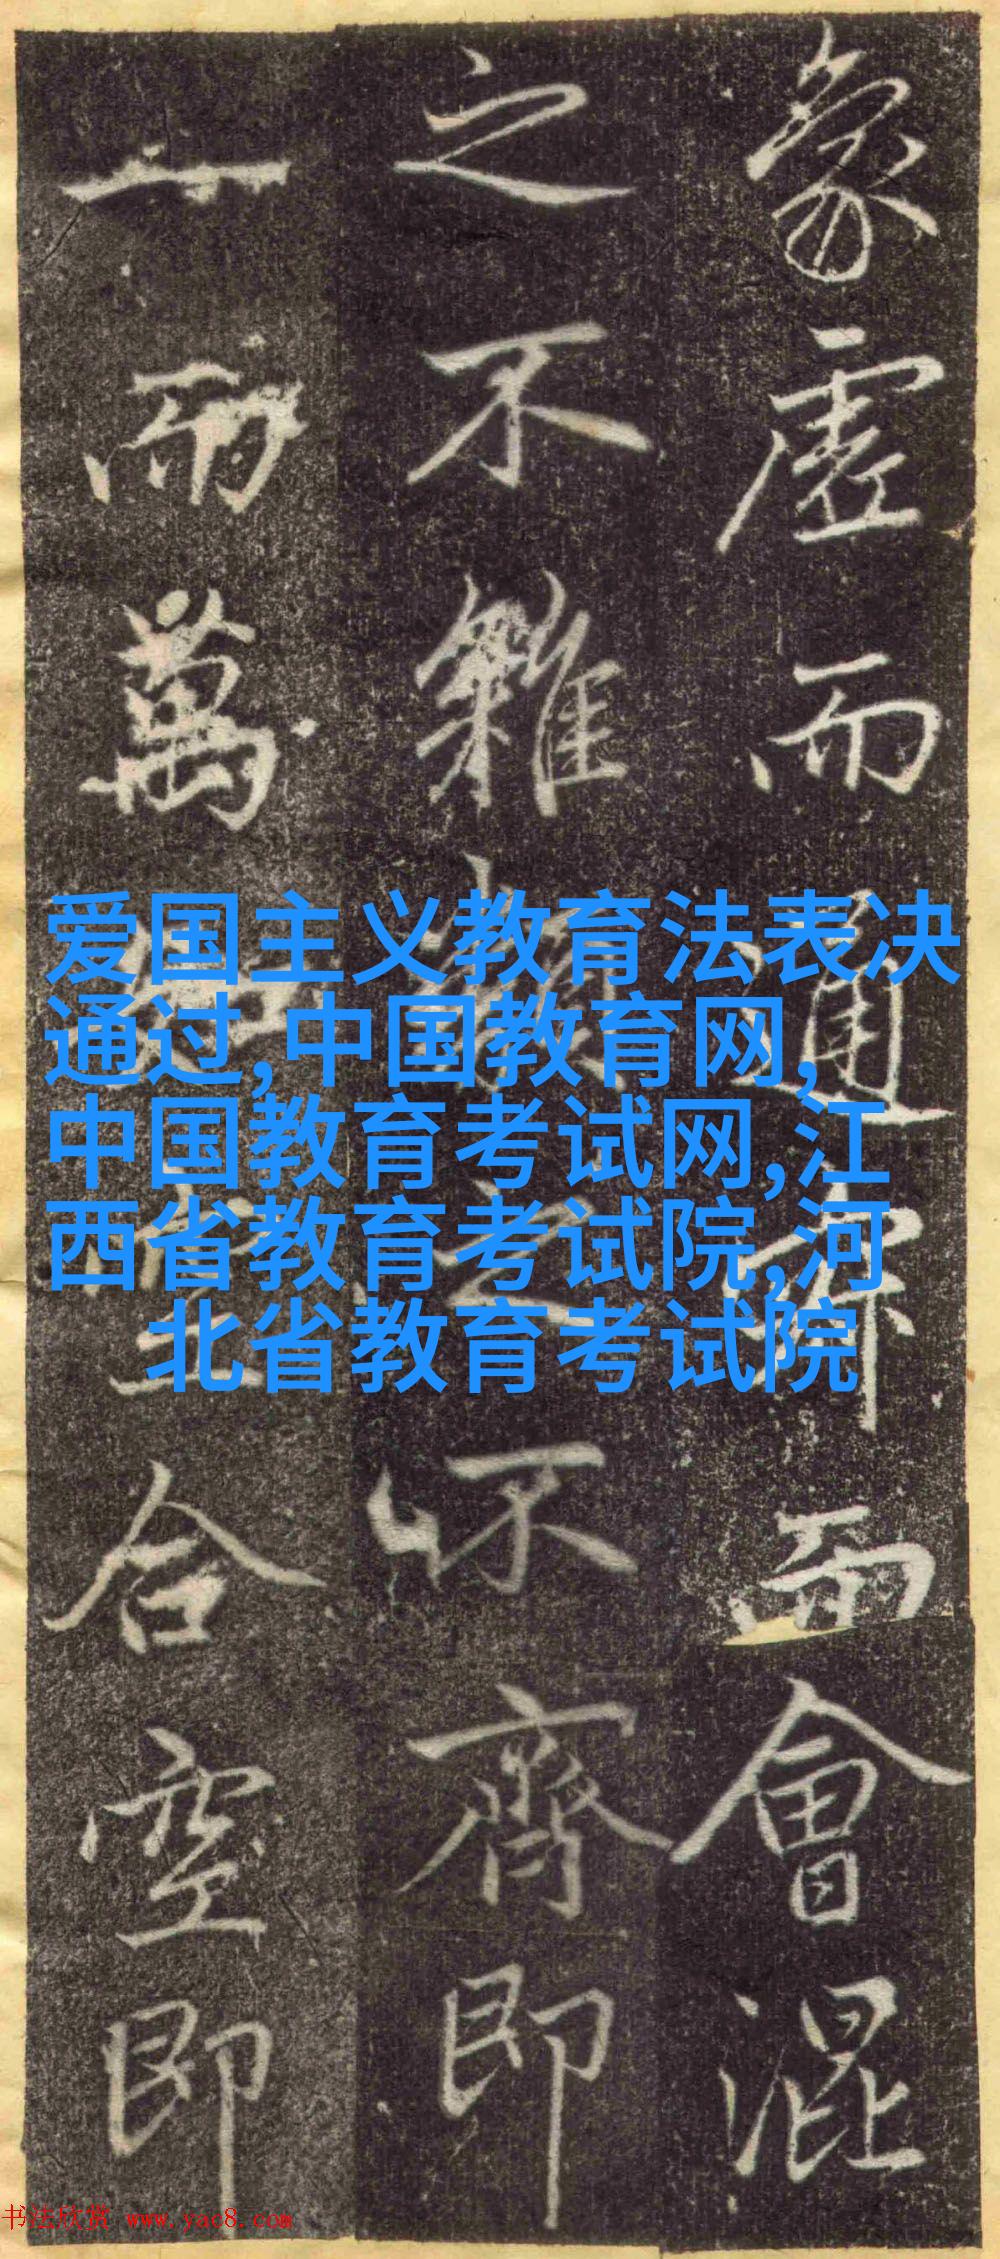 象虛而通而會混
之不雜之不齊即
一而萬合空即
爱国主义教育法表决
通过,中国教育网,
中国教育考试网,江
西省教育考试院,河
北省教育考试院
书法欣赏 www.yac8.com